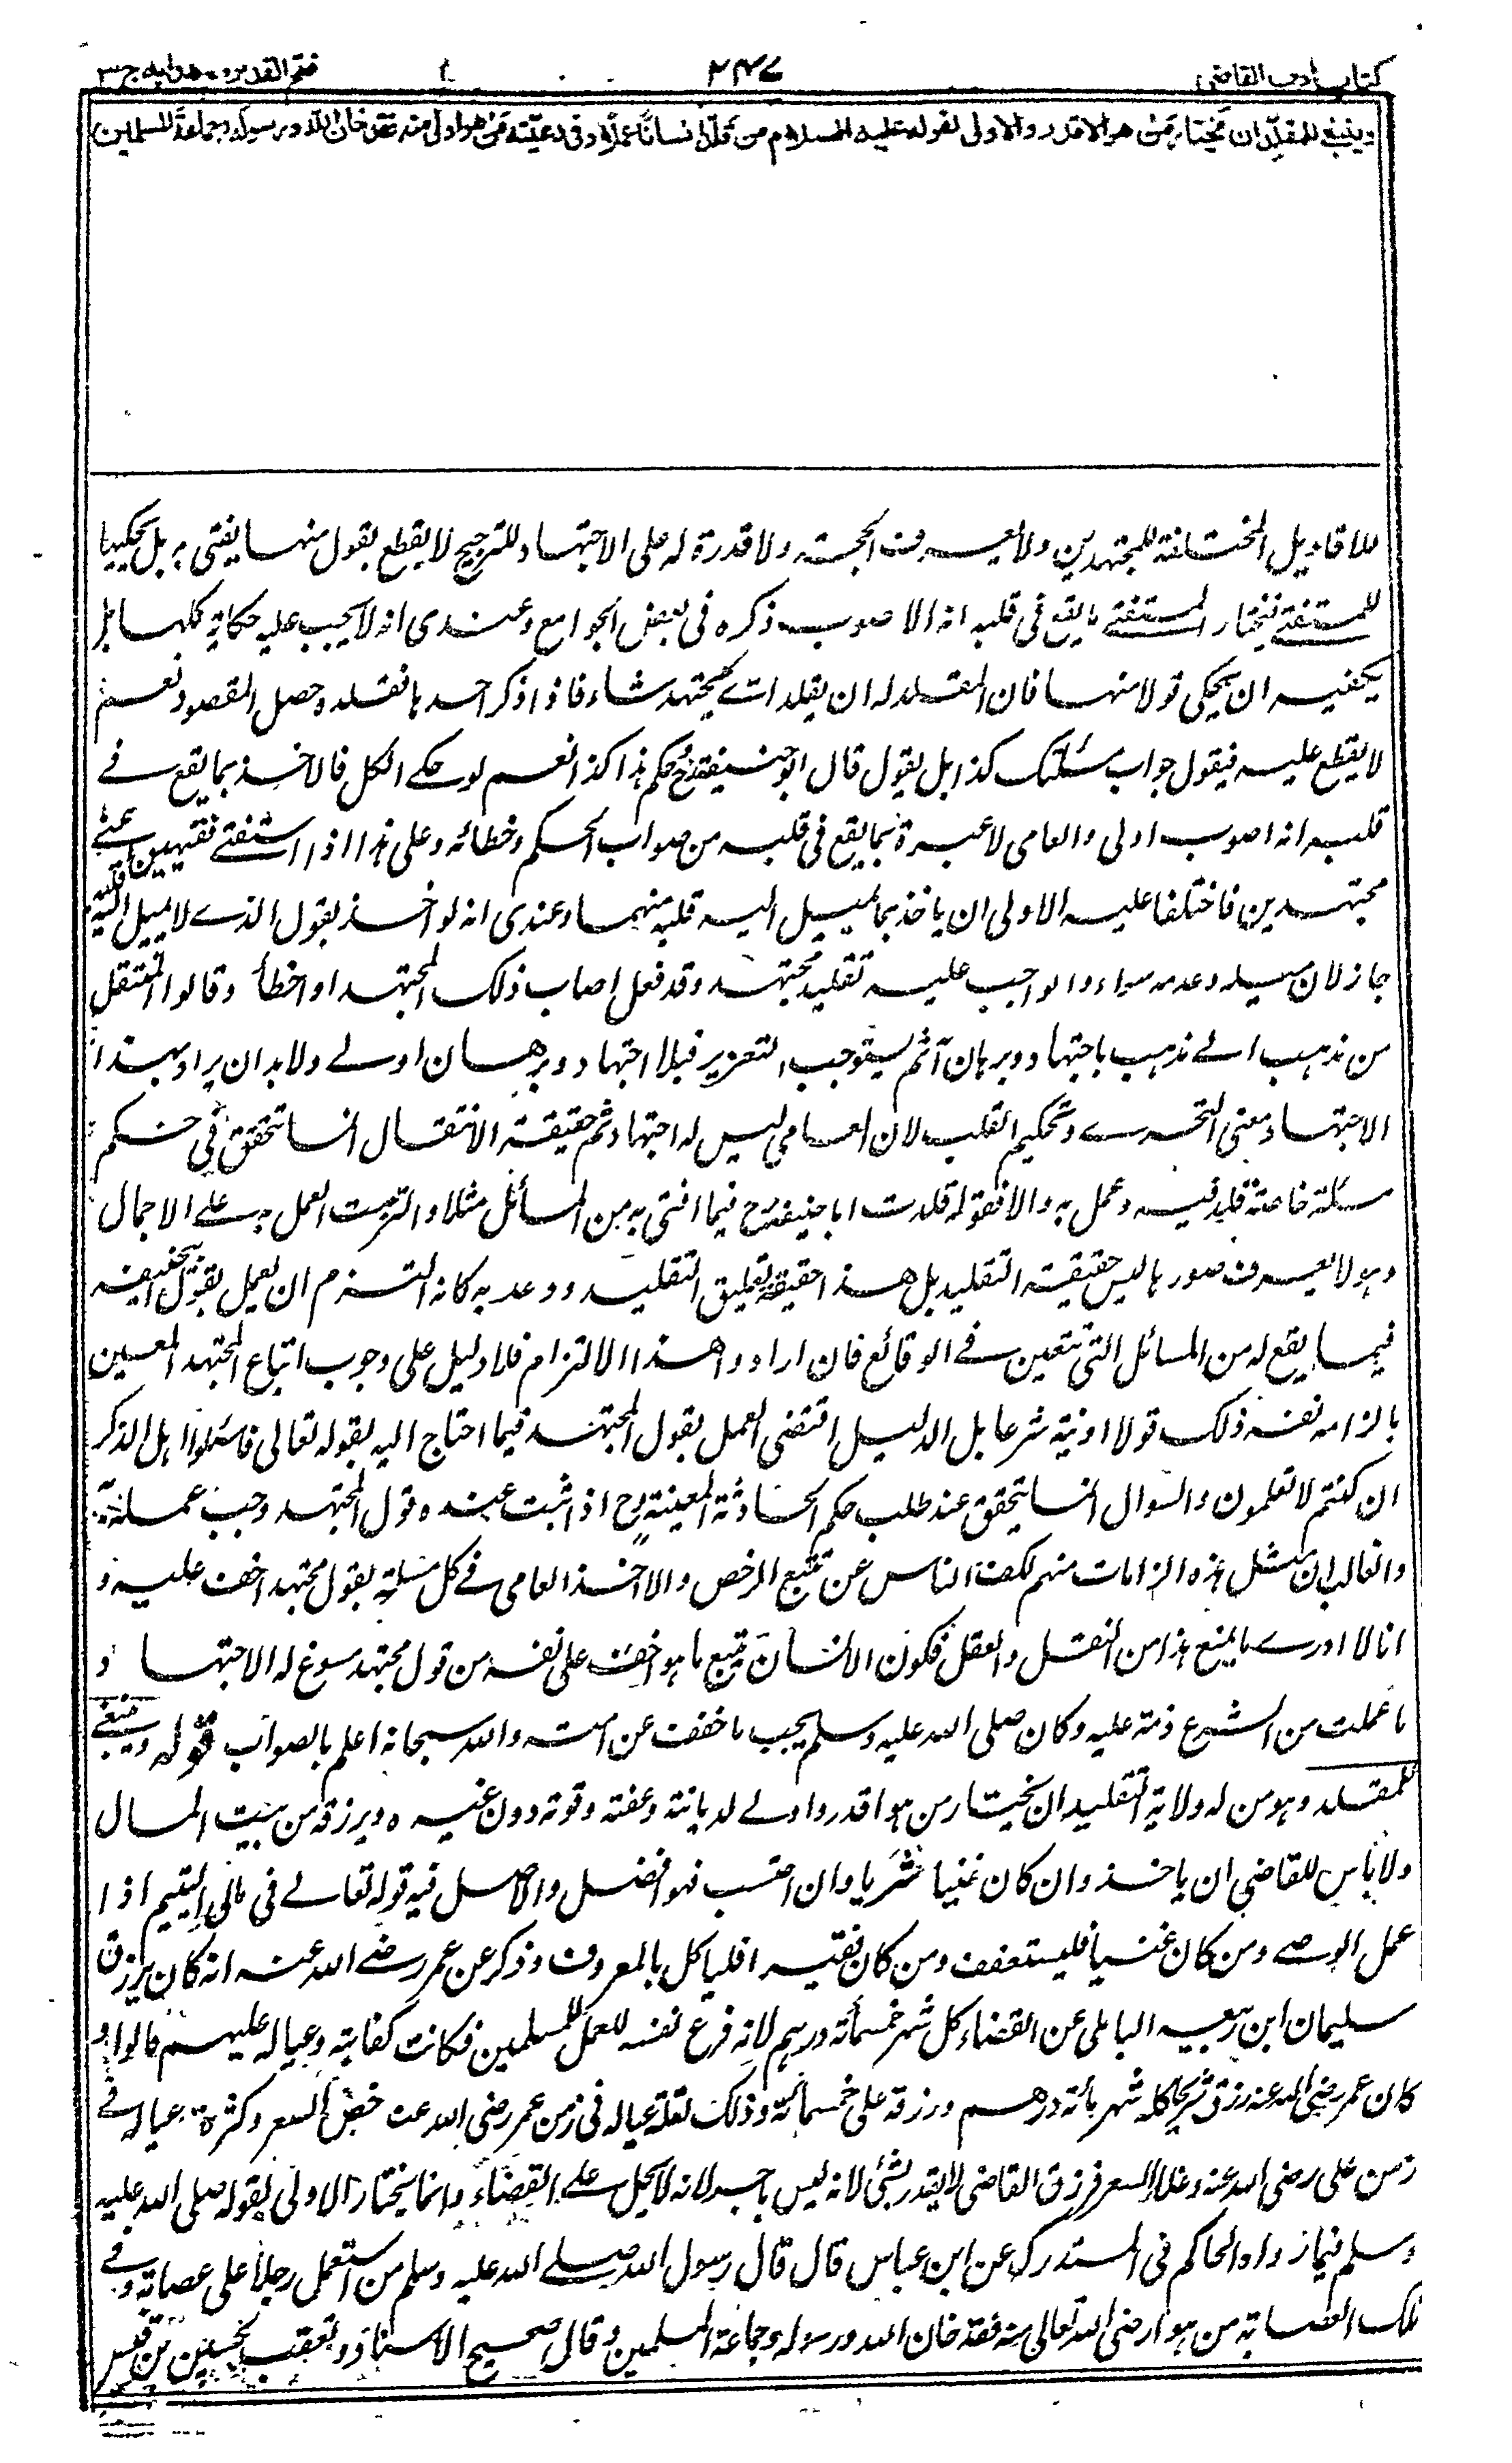 كتاب أدب القاضى
٢٤٧
فتح القدير مع هدايه ج ٣
وينبغى للمقلد ان يختار من هو الاقدر والاولى لقوله عليه السلام من قلد انسانا عملا وفى رعيته من هو اولى منه فقد خان الله ورسوله وجماعة المسلمين
للاقاويل المختلفة للمجتهدين ولا يعرف الحجة ولا قدرة له على الاجتهاد للترجيح لا يقطع بقول منها يفتى به بل يحكيها
للمستفتے فيختار المستفتے ما يقع فى قلبه انه الاصوب ذكره فى بعض الجوامع وعندى انه لا يجب عليه حكاية كلها بل
يكفيه ان يحكى قولا منها فان المقلد له ان يقلد اے مجتهد شاء فاذا ذكر احدها فقلده حصل المقصود نعم
لا يقطع عليه فيقول جواب مسئلتك كذا بل يقول قال ابو حنيفة رح حكم هذا كذا نعم لو حكے الكل فالاخذ بما يقع فے
قلبه انه اصوب اولى والعامى لا عبرة بما يقع فى قلبه من صواب الحكم وخطائه وعلى هذا اذا استفتے فقيهين اعنے
مجتهدين فاختلفا عليه الاولى ان ياخذ بما يميل اليه قلبه منهما وعندى انه لو اخذ بقول الذے لا يميل اليه قلبه
جاز لان ميله وعدمه سواء والواجب عليه تقليد مجتهد وقد فعل اصاب ذلك المجتهد او اخطأ وقالوا المنتقل
من مذهب الے مذهب باجتهاد وبرهان آثم يستوجب التعزير فبلا اجتهاد وبرهان اولے ولا بد ان يراد بهذا
الاجتهاد معنى التحرے وتحكيم القلب لان العامى ليس له اجتهاد ثم حقيقة الانتقال انما تتحقق فى حكم
مسئلة خاصة قلد فيه وعمل به والا فقوله قلدت ابا حنيفة رح فيما افتى به من المسائل مثلا والتزمت العمل به علے الاجمال
وهو لا يعرف صورها ليس حقيقة التقليد بل هذا حقيقة تعليق التقليد ووعد به كانه التزم ان يعمل بقول ابى حنيفة
فيما يقع له من المسائل التى تتعين فے الوقائع فان ارادوا هذا الالتزام فلا دليل على وجوب اتباع المجتهد المعين
بالزامه نفسه ذلك قولا او نية شرعا بل الدليل اقتضى العمل بقول المجتهد فيما احتاج اليه بقوله تعالى فاسئلوا اهل الذكر
ان كنتم لا تعلمون والسوال انما يتحقق عند طلب حكم الحادثة المعينة وح اذا ثبت عنده قول المجتهد وجب عمله به
والغالب ان مثل هذه الزامات منهم لكف الناس عن تتبع الرخص والا اخذ العامى فے كل مسئلة بقول مجتهد اخف عليه و
انا لا ادرے ما يمنع هذا من النقل والعقل فكون الانسان يتبع ما هو اخف على نفسه من قول مجتهد مسوغ له الاجتهاد و
ما علمت من الشرع ذمه عليه وكان صلى الله عليه وسلم يحب ما خفف عن امته والله سبحانه اعلم بالصواب قوله وينبغے
للمقلد وهو من له ولاية التقليد ان يختار من هو اقدر واولے لديانته وعفته وقوته دون غيره ويرزقه من بيت المال
ولا بأس للقاضى ان ياخذ وان كان غنيا مثريا وان احتسب فهو افضل والاصل فيه قوله تعالے فى مال اليتيم اذا
عمل الوصے ومن كان غنيا فليستعفف ومن كان فقيرا فلياكل بالمعروف وذكر عن عمر رضے الله عنه انه كان يرزق
سليمان ابن ربيعه الباهلى عن القضاء كل شهر خمسمأته درهم لانه فرغ نفسه للعمل للمسلمين فكانت كفايته وعياله عليهم قالوا و
كان عمر رضى الله عنه رزق شريحا كل شهر مأته درهم ورزقه على خمسمأته وذلك لقلة عياله فى زمن عمر رضى الله عنه ورخص السعر وكثرة عياله فے
زمن على رضى الله عنه وغلاء السعر فرزق القاضى لا يقدر بشئ لانه ليس باجر لانه لا يحل علے القضاء وانما يختار الاولى لقوله صلى الله عليه
وسلم فيما رواه الحاكم فى المستدرك عن ابن عباس قال قال رسول الله صلے الله عليه وسلم من استعمل رجلا على عصابة وفے
تلك العصابة من هو ارضى الله تعالى منه فقد خان الله ورسوله وجماعة المسلمين وقال صحيح الاسناد وتعقب بحسين بن قيس